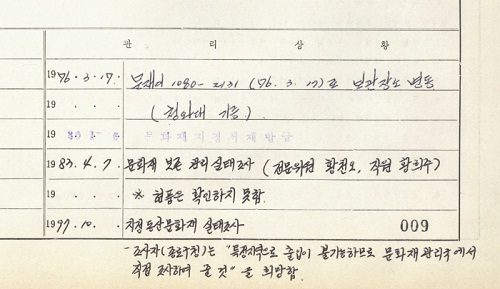 관 리 상 황
1976. 3. 17. 문재이 1080-2131 (76. 3. 17)로 보관장소 변동
19 . . . (청와대 기증).
19 문화재지정서재발급
1983. 4. 7. 문화재 보존 관리 실태조사 (전문위원 황천오, 직원 황희주)
19 . . . ※ 현품은 확인하지 못함.
1997. 10. . 지정동산문화재 실태조사 009
- 조사자(종로구청)는 "특정지역으로 출입이 불가능하므로 문화재 관리국에서
직접 조사하여 줄 것"을 희망함.